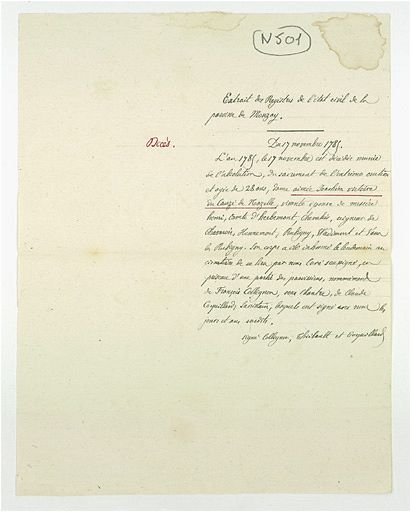 N501
Extrait des Registres de l'état civil de la
paroisse de Mouzay.
Décès.
Du 17 novembre 1785.
L'an 1785, le 17 novembre est décédée munie
de l'absolution, du sacrement de l'extrême onction
et agée de 28 ans, Dame aimée
du Cauzé de Nazelle, épouse de messire
Comte d'herbemont, Chevalier, seigneur de
Charmois, et
Quincy. Son corps a été inhumé le lendemain au
cimetière de ce lieu par nous Curé soussigné, en
présence d'une partie des paroissiens, nommément
de François Collignon, notre chantre, de Claude
Coquillard, lesquels ont signé avec nous les
jour et an susdits.
signé Collignon, et Coquillard